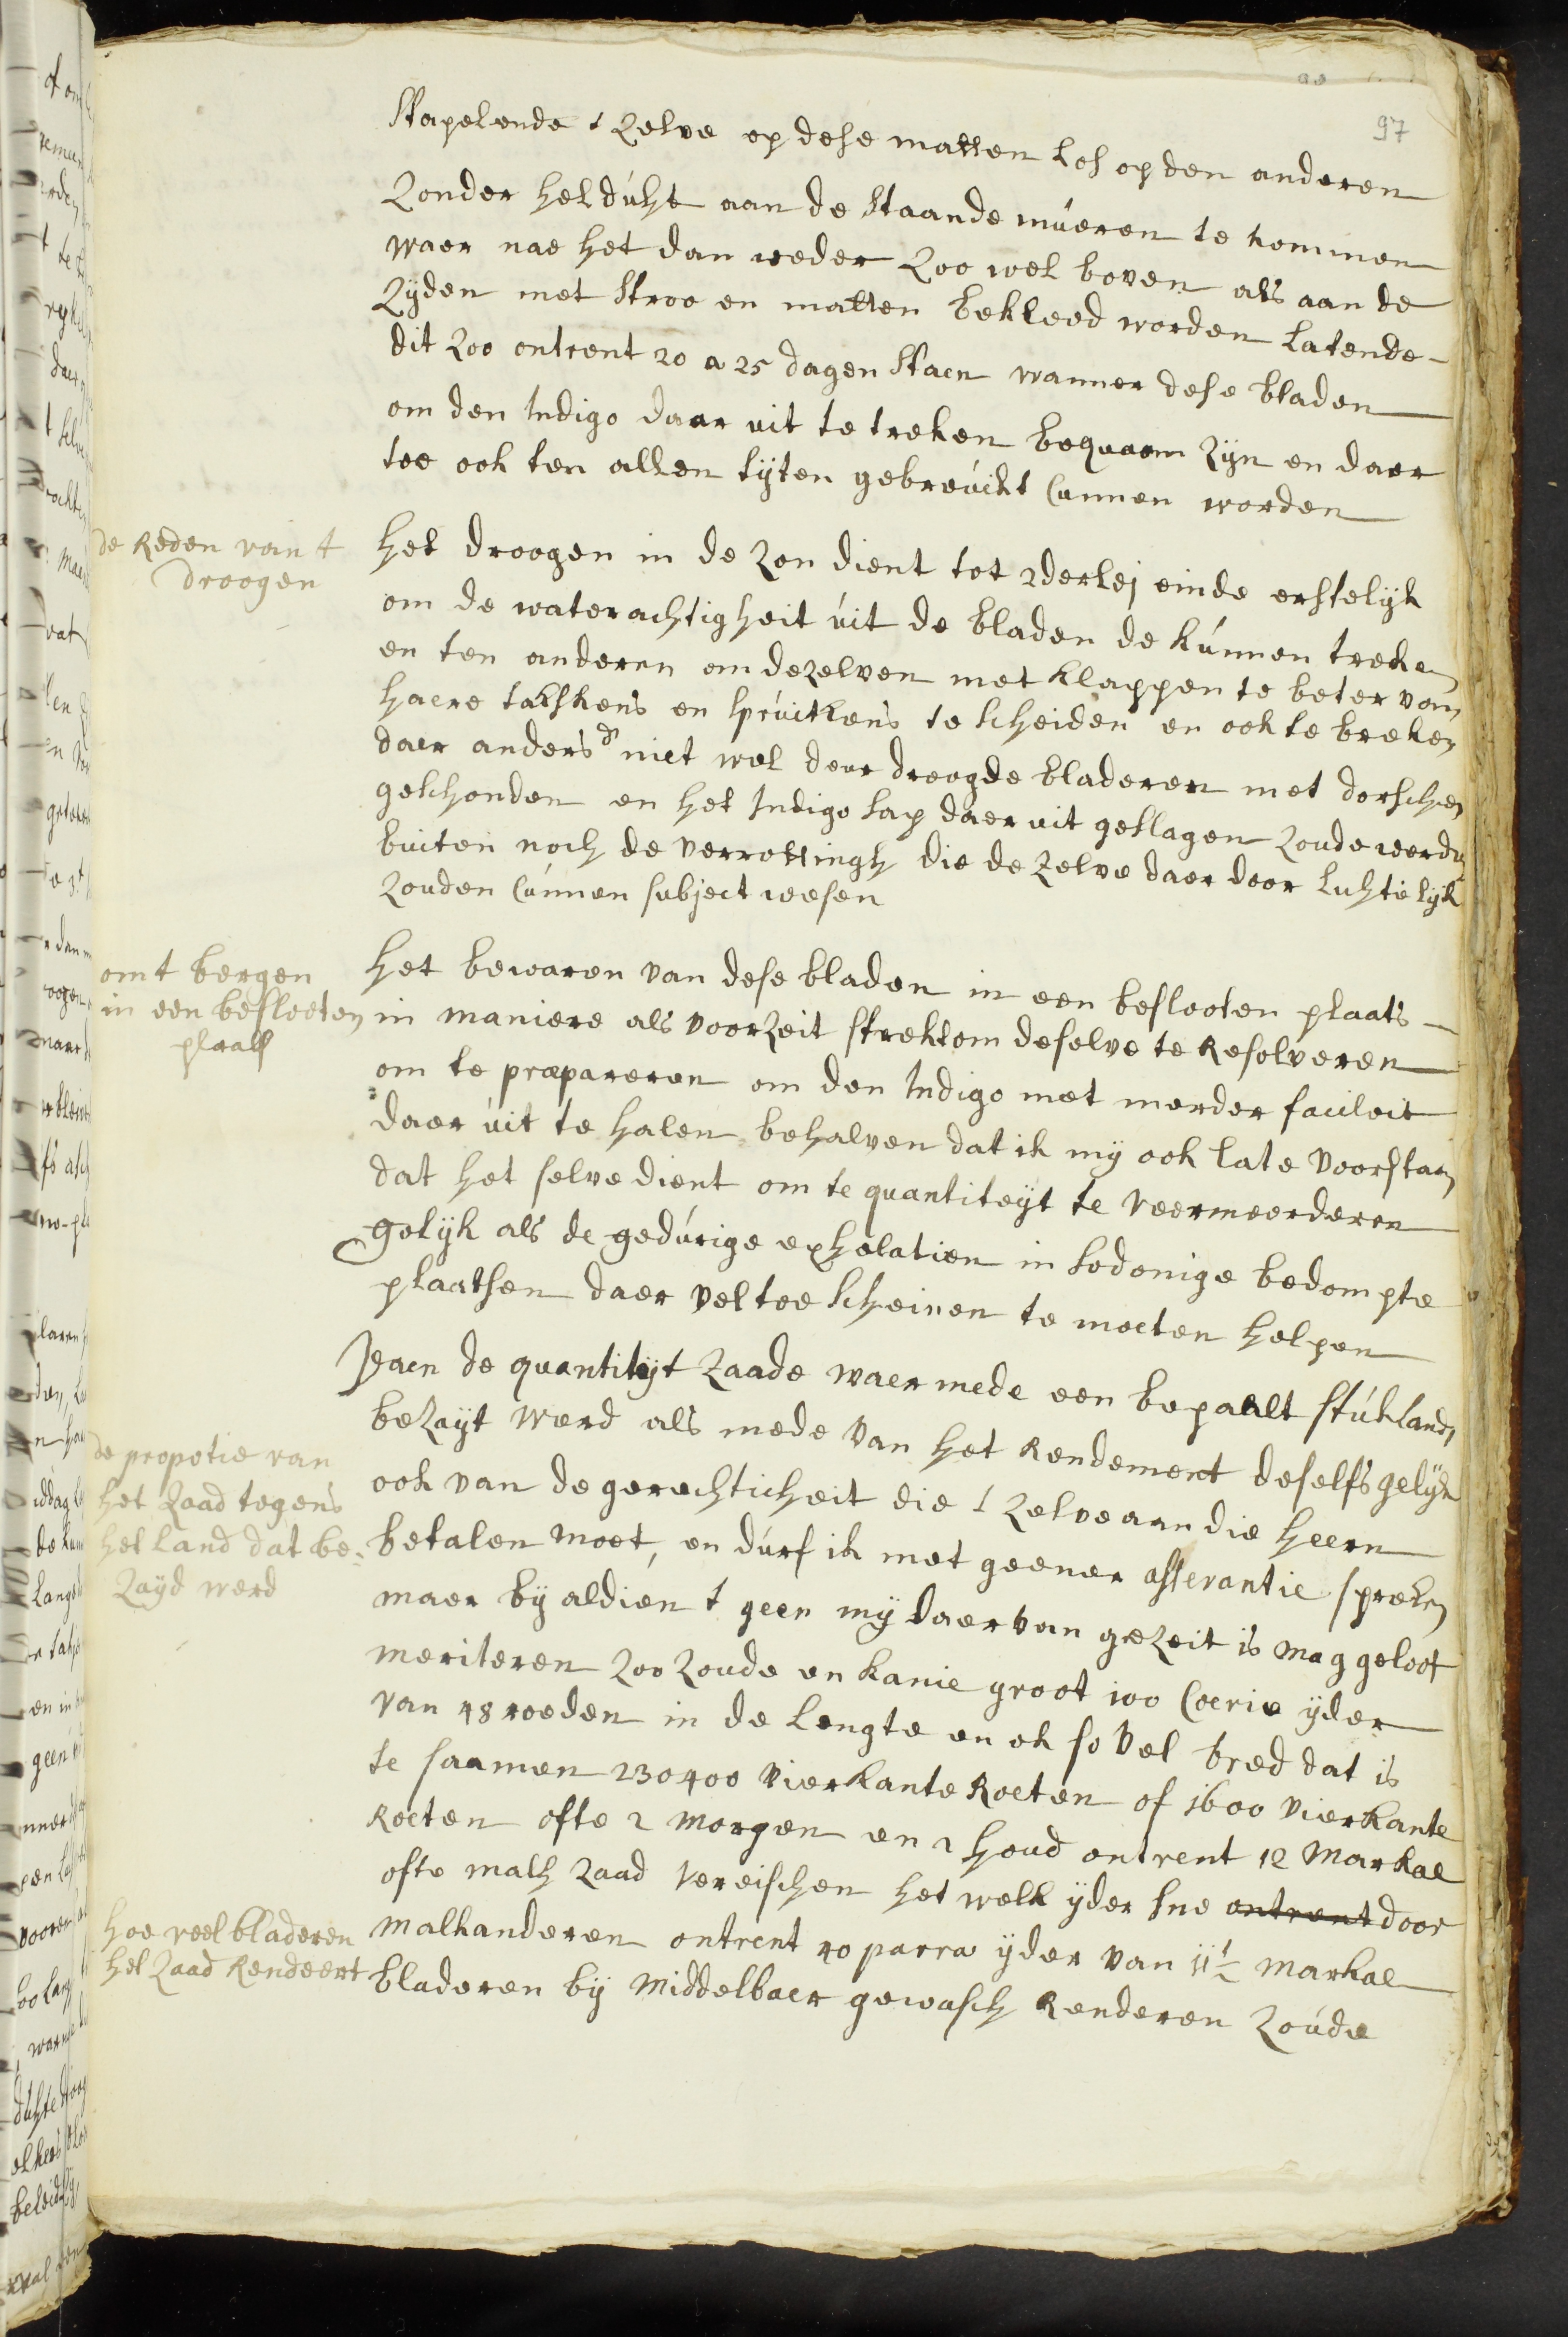 97
Stapelende t zelve op dese matten los op den anderen
zonder het dúht aan de staande múeren te kommen
waer nae het dan weder zoo wel boven als aan de
zyden met stroo en matten bekleed worden latende
dit zoo ontrent 20 a 25 dagen staen wanner dese bladen
om den Indigo daar uit te treken bequaem zyn en daer
toe ook ten allen tyten gebreúckt Cunnen worden
de Reden van t
droogen
het droogen in de zon dient tot 2derlej einde erstelyk
om de waterachtigheit úit de bladen de kúnnen treken
en ten anderen om dezelven met klappen te beter van
haere takskens en sprúitkens te scheiden en ook te breken
daer anders dr niet wel deur droogde bladeren met dorschen
geschonden en het Indigo sap daer uit geslagen zoude werden
buiten noch de verrottingh die de zelve daer door luhtelyk
zouden Cúnnen subject wesen
omt bergen
in een beslooten
plaats
het bewaren van dese bladen in een beslooten plaats
in maniere als voorzeit strekt om deselve te Resolveren
om te præpareren om den Indigo met merder facileit
daer úit te halen behalven dat ik my ook late voorstaan
dat het selve dient om te quantiteyt te veermeerderen
gelyk als de gedúrige exhalatien in sodonige bedompte
plaatsen daer vel toe scheinen te moeten helpen
de propotie van
het zaad tegens
het land dat be-
zayd werd
Jeaen de quantityt zaade waer mede een bepaalt stúk lands
bezayt werd als mede van het Rendement deselfs gelyk
ook van de gerechticheit die t zelve aan die heern
betalen moet, en dúrf ik met geener asserantie spreken
maer by aldien t geen my daer van gezeit is mag geloof
meriteren zoo zoude en kanie groot 100 Coerie yder
van 48 roeden in de lengte en ok so vel bred dat is
te saamen 230400 vierkante Roeten of 1600 vierkante
Roeten ofte 2 morgen en 2 houd ontrent 12 Markal
ofte malh zaad vereischen het welk yder sne ontrent door
hoe veel bladeren
het zaad Rendeert
malkanderen ontrent 40 parra yder van 11½ markal
bladeren by middelbaer gewasch Renderen zoúde